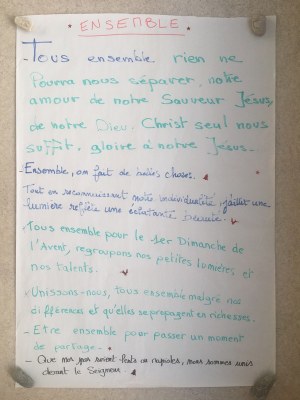 ENSEMBLE
- Tous ensemble rien ne
Pourra nous séparer, notre
amour de notre Sauveur Jésus,
de notre Dieu. Christ seul nous
suffit, gloire à notre Jésus.
- Ensemble, on fait de belles choses.
Tout en reconnaissant notre individualité, jaillit une
lumière reflète une éclatante beauté.
- Tous ensemble pour le 1er Dimanche de
l'Avent, regroupons nos petites lumières et
nos talents.
- Unissons-nous, tous ensemble malgré nos
différences et qu'elles se propagent en richesses.
- Etre ensemble pour passer un moment
de partage.
- Que nos pas soient lents ou rapides, nous sommes unis
devant le Seigneur